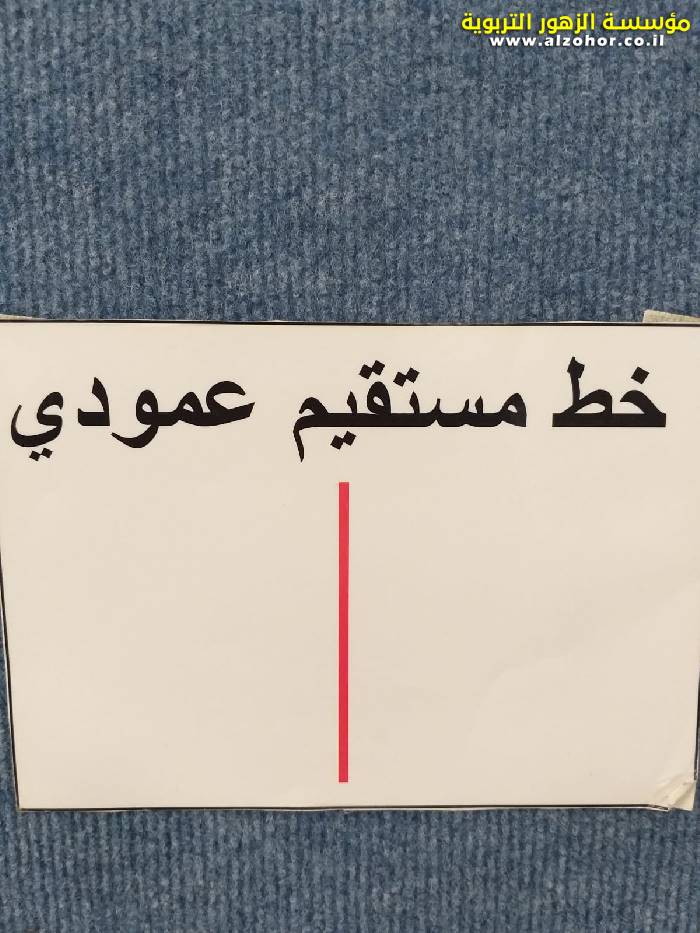 مؤسسة الزهور التربوية
www.alzohor.co.il
خط مستقيم عمودي